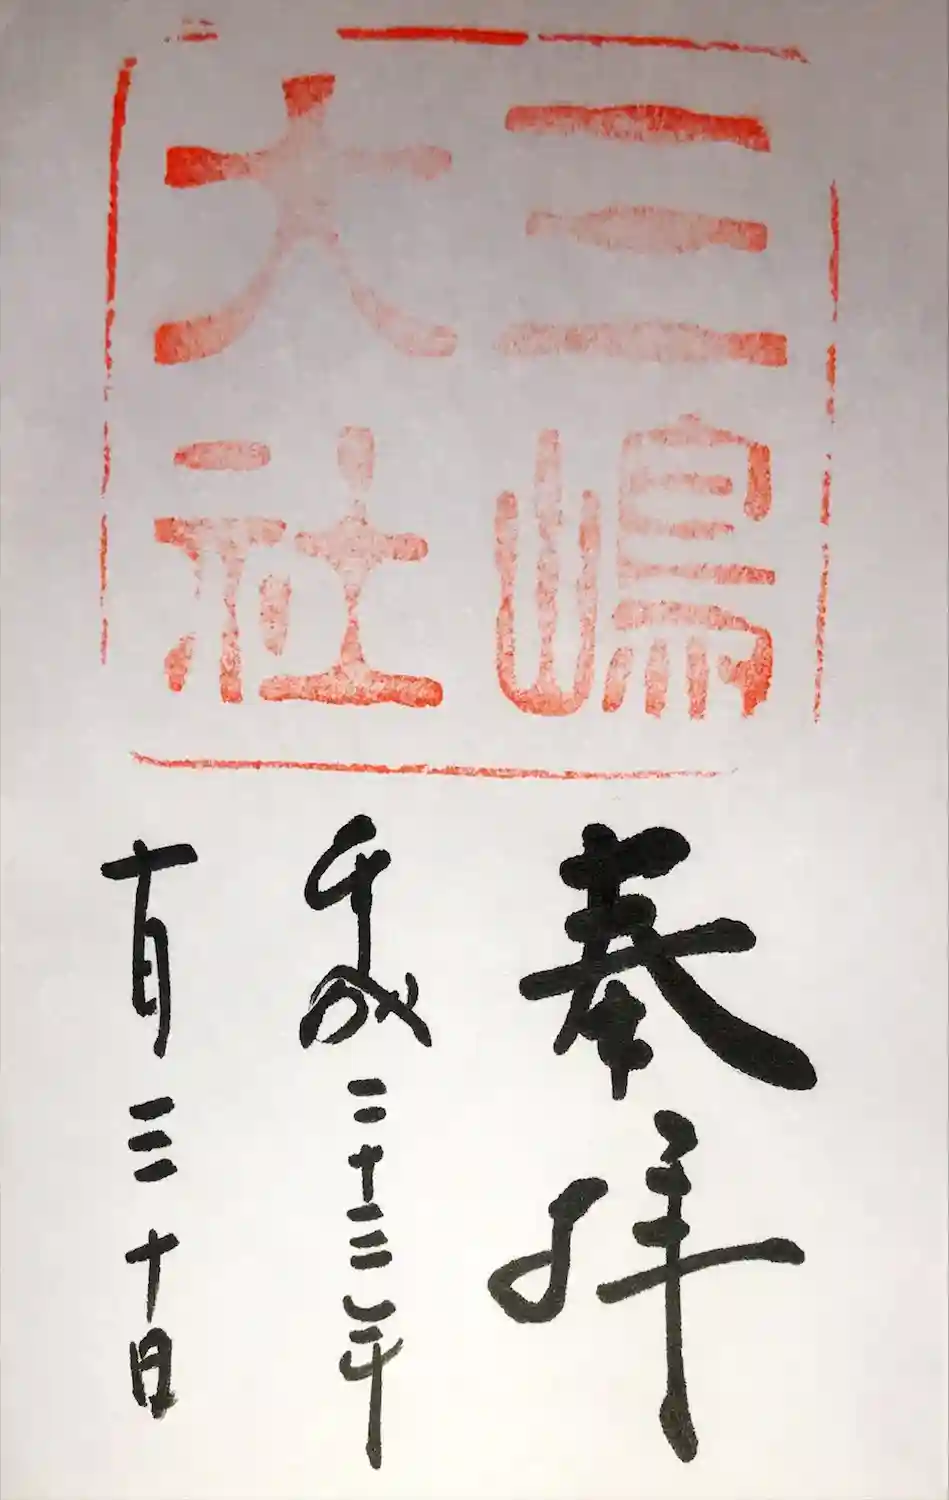 三嶋
大社
奉拝
平成二十三年
十月三十日